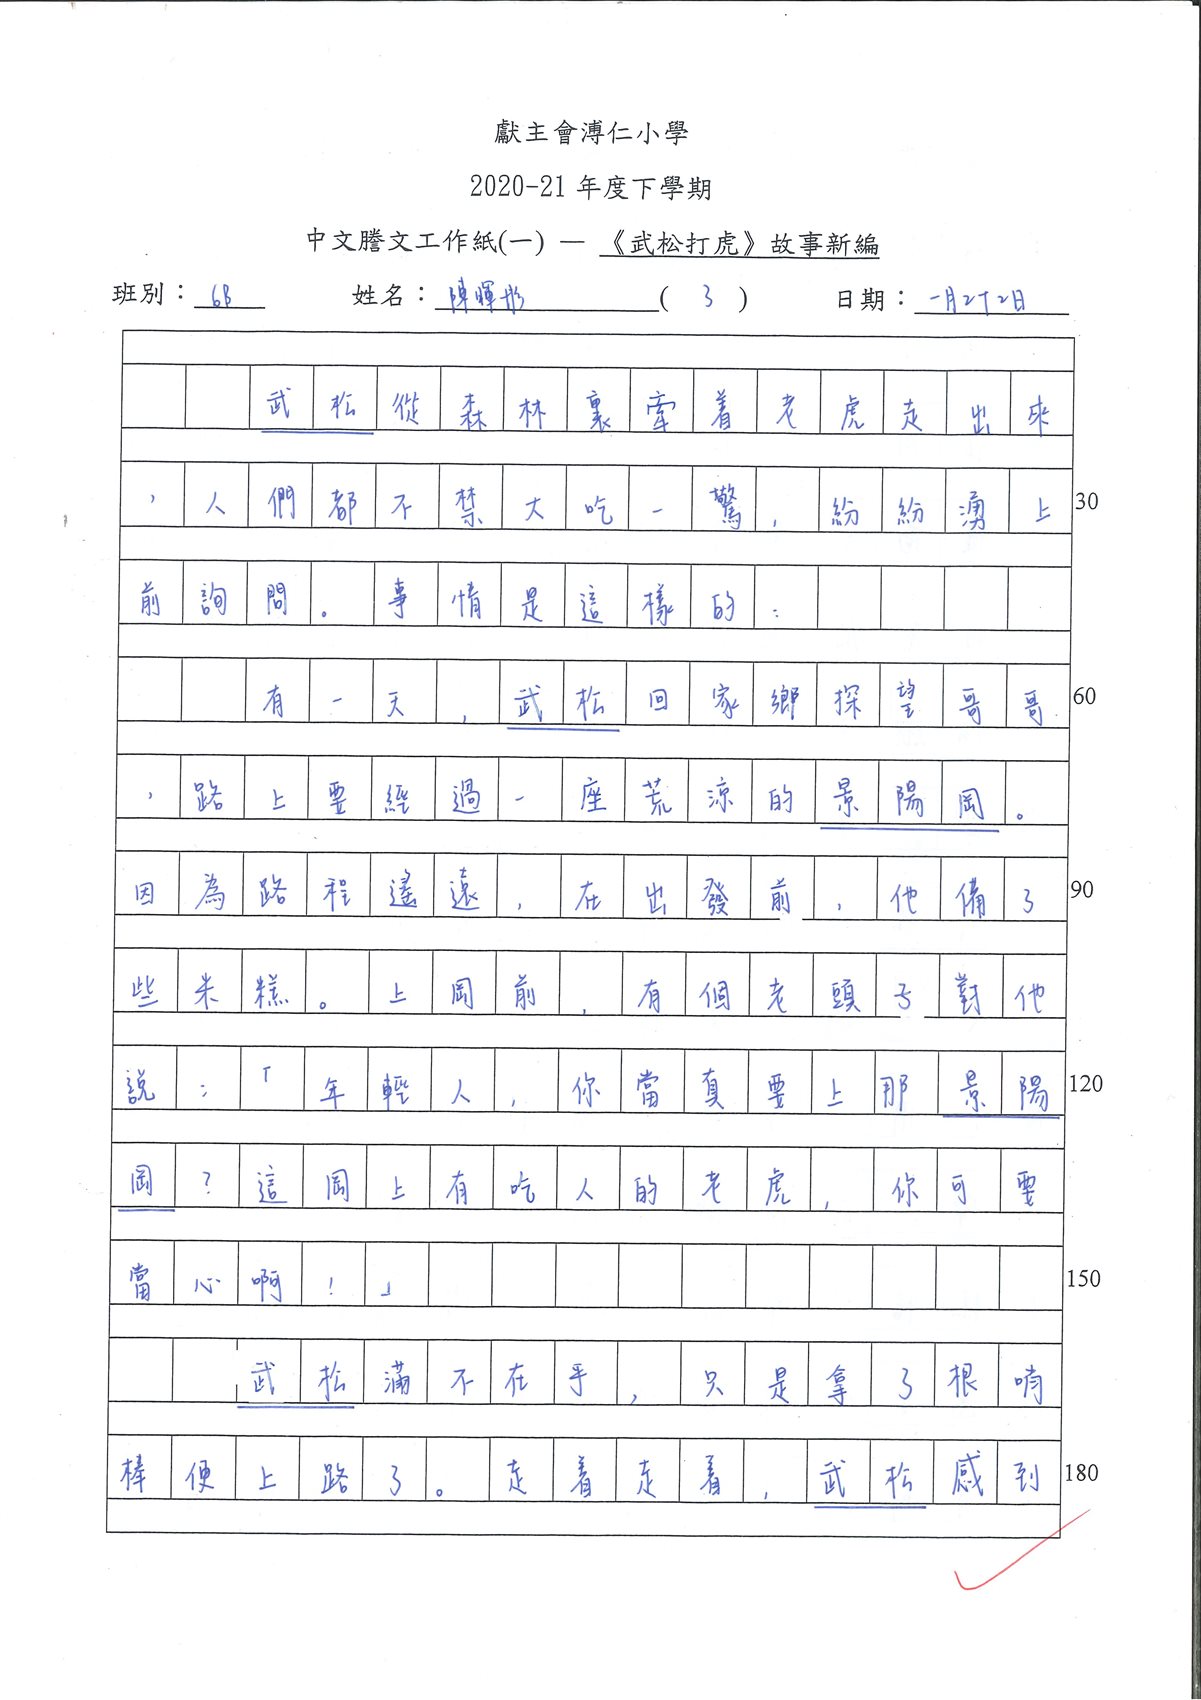 獻主會溥仁小學
2020-21 年度下學期
中文謄文工作紙(一) — 《武松打虎》故事新編
班別：6B 姓名：陳暉彤 ( 3 ) 日期：一月二十二日
武松從森林裏牽着老虎走出來
，人們都不禁大吃一驚，紛紛湧上 30
前詢問。事情是這樣的：
有一天，武松回家鄉探望哥哥 60
，路上要經過一座荒涼的景陽岡。
因為路程遙遠，在出發前，他備了 90
些米糕。上岡前，有個老頭子對他
說：「年輕人，你當真要上那景陽 120
岡？這岡上有吃人的老虎，你可要
當心啊！」 150
武松滿不在乎，只是拿了根哨
棒便上路了。走着走着，武松感到 180